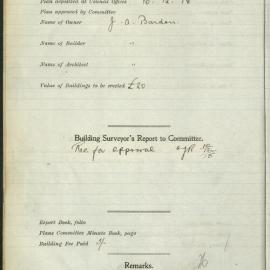 Plan deposited at Council Office 10.12.18
Plan approved by Committee
Name of Owner J. A. Barden
Name of Builder "
Name of Architect "
Value of Buildings to be erected £20
Building Surveyor's Report to Committee.
Rec for approval
Report Book, folio
Plans Committee Minute Book, page
Building Fee Paid
Remarks.